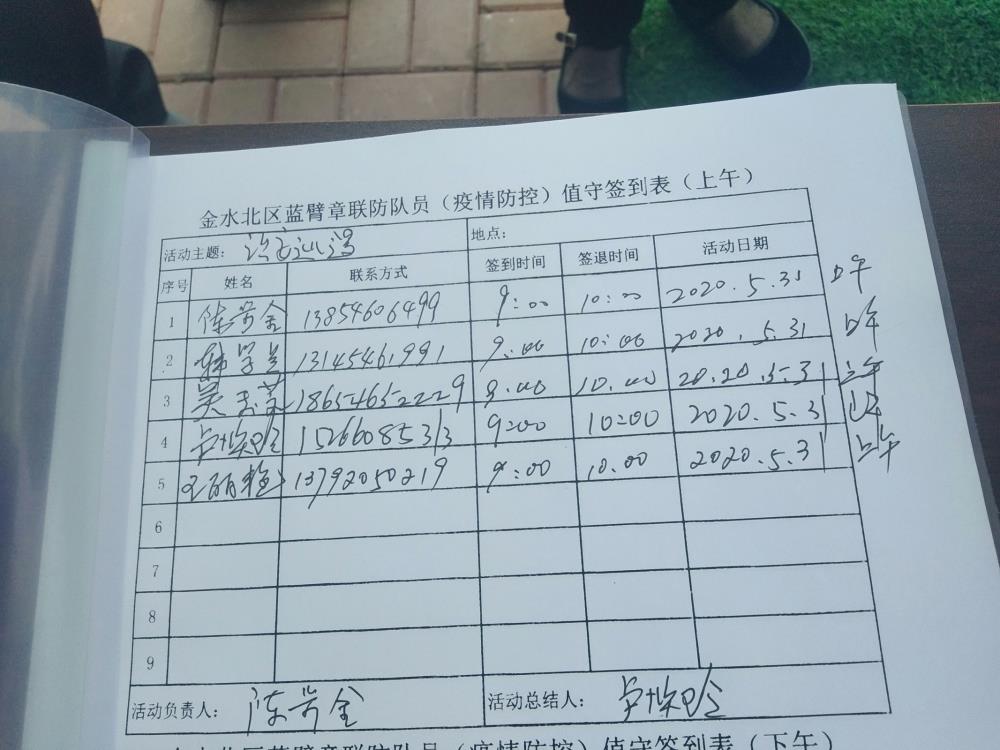 金水北区蓝臂章联防队员（疫情防控）值守签到表（上午）
活动主题： 地点：
序号 姓名 联系方式 签到时间 签退时间 活动日期
1 陈芳金 13854606499 9:00 10:00 2020.5.31 上午
2 韩 13145461991 9:00 10:00 2020.5.31 上午
3 吴 18654652229 9:00 10:00 2020.5.31 上午
4 卢 15266085313 9:00 10:00 2020.5.31 上午
5 王丽艳 13792050219 9:00 10:00 2020.5.31 上午
6
7
8
9
活动负责人： 陈芳金 活动总结人： 卢
金水北区蓝臂章联防队员（疫情防控）值守签到表（下午）